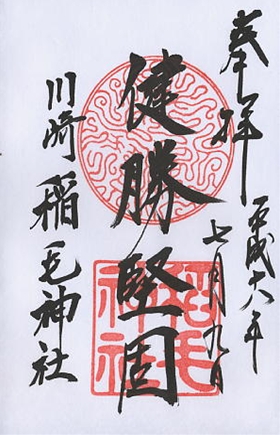 奉拝
平成十六年
七月九日
健勝堅固
川崎 稲毛神社
稲毛
神社